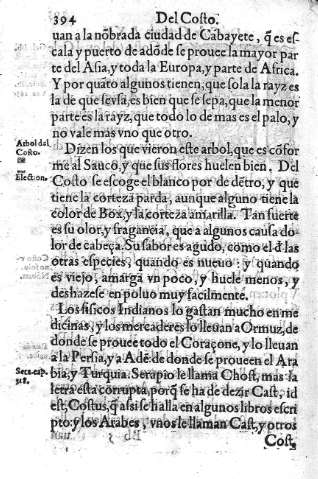 394 Del Costo.
uan a la nõbrada ciudad de Cabayete, q̃ es es-
cala y puerto de adõde se prouee la mayor par
te del Asia, y toda la Europa, y parte de Africa.
Y por quãto algunos tienen, que sola la rayz es
la de que se vsa, es bien que se sepa, que la menor
parte es la rayz, que todo lo de mas es el palo, y
no vale mas vno que otro.
Arbol del
Costo.
Dizen los que vieron este arbol, que es cõfor
me al Sauco, y que sus flores huelen bien. Del
Election.
Costo se escoge el blanco por de dẽtro, y que
tiene la corteza parda, aunque alguno tiene la
color de Box, y la corteza amarilla. Tan fuerte
es su olor, y fragancia, que a algunos causa do-
lor de cabeça. Su sabor es agudo, como el d̃ las
otras especies, quando es nueuo; y quando
es viejo, amarga vn poco, y huele menos, y
deshazese en poluo muy facilmente.
Los fisicos Indianos lo gastan mucho en me
dicinas, y los mercaderes lo lleuan a Ormuz, de
donde se prouee todo el Coraçone, y lo lleuan
a la Persia, y a Adẽ de donde se proueen el Ara
bia, y Turquia. Serapio le llama Chost, mas la
letra esta corrupta, porq̃ se ha de dezir Cast, id
est, Costus, q̃ assi se halla en algunos libros escri
pto: y los Arabes, vnos le llaman Cast, y otros
Cost,